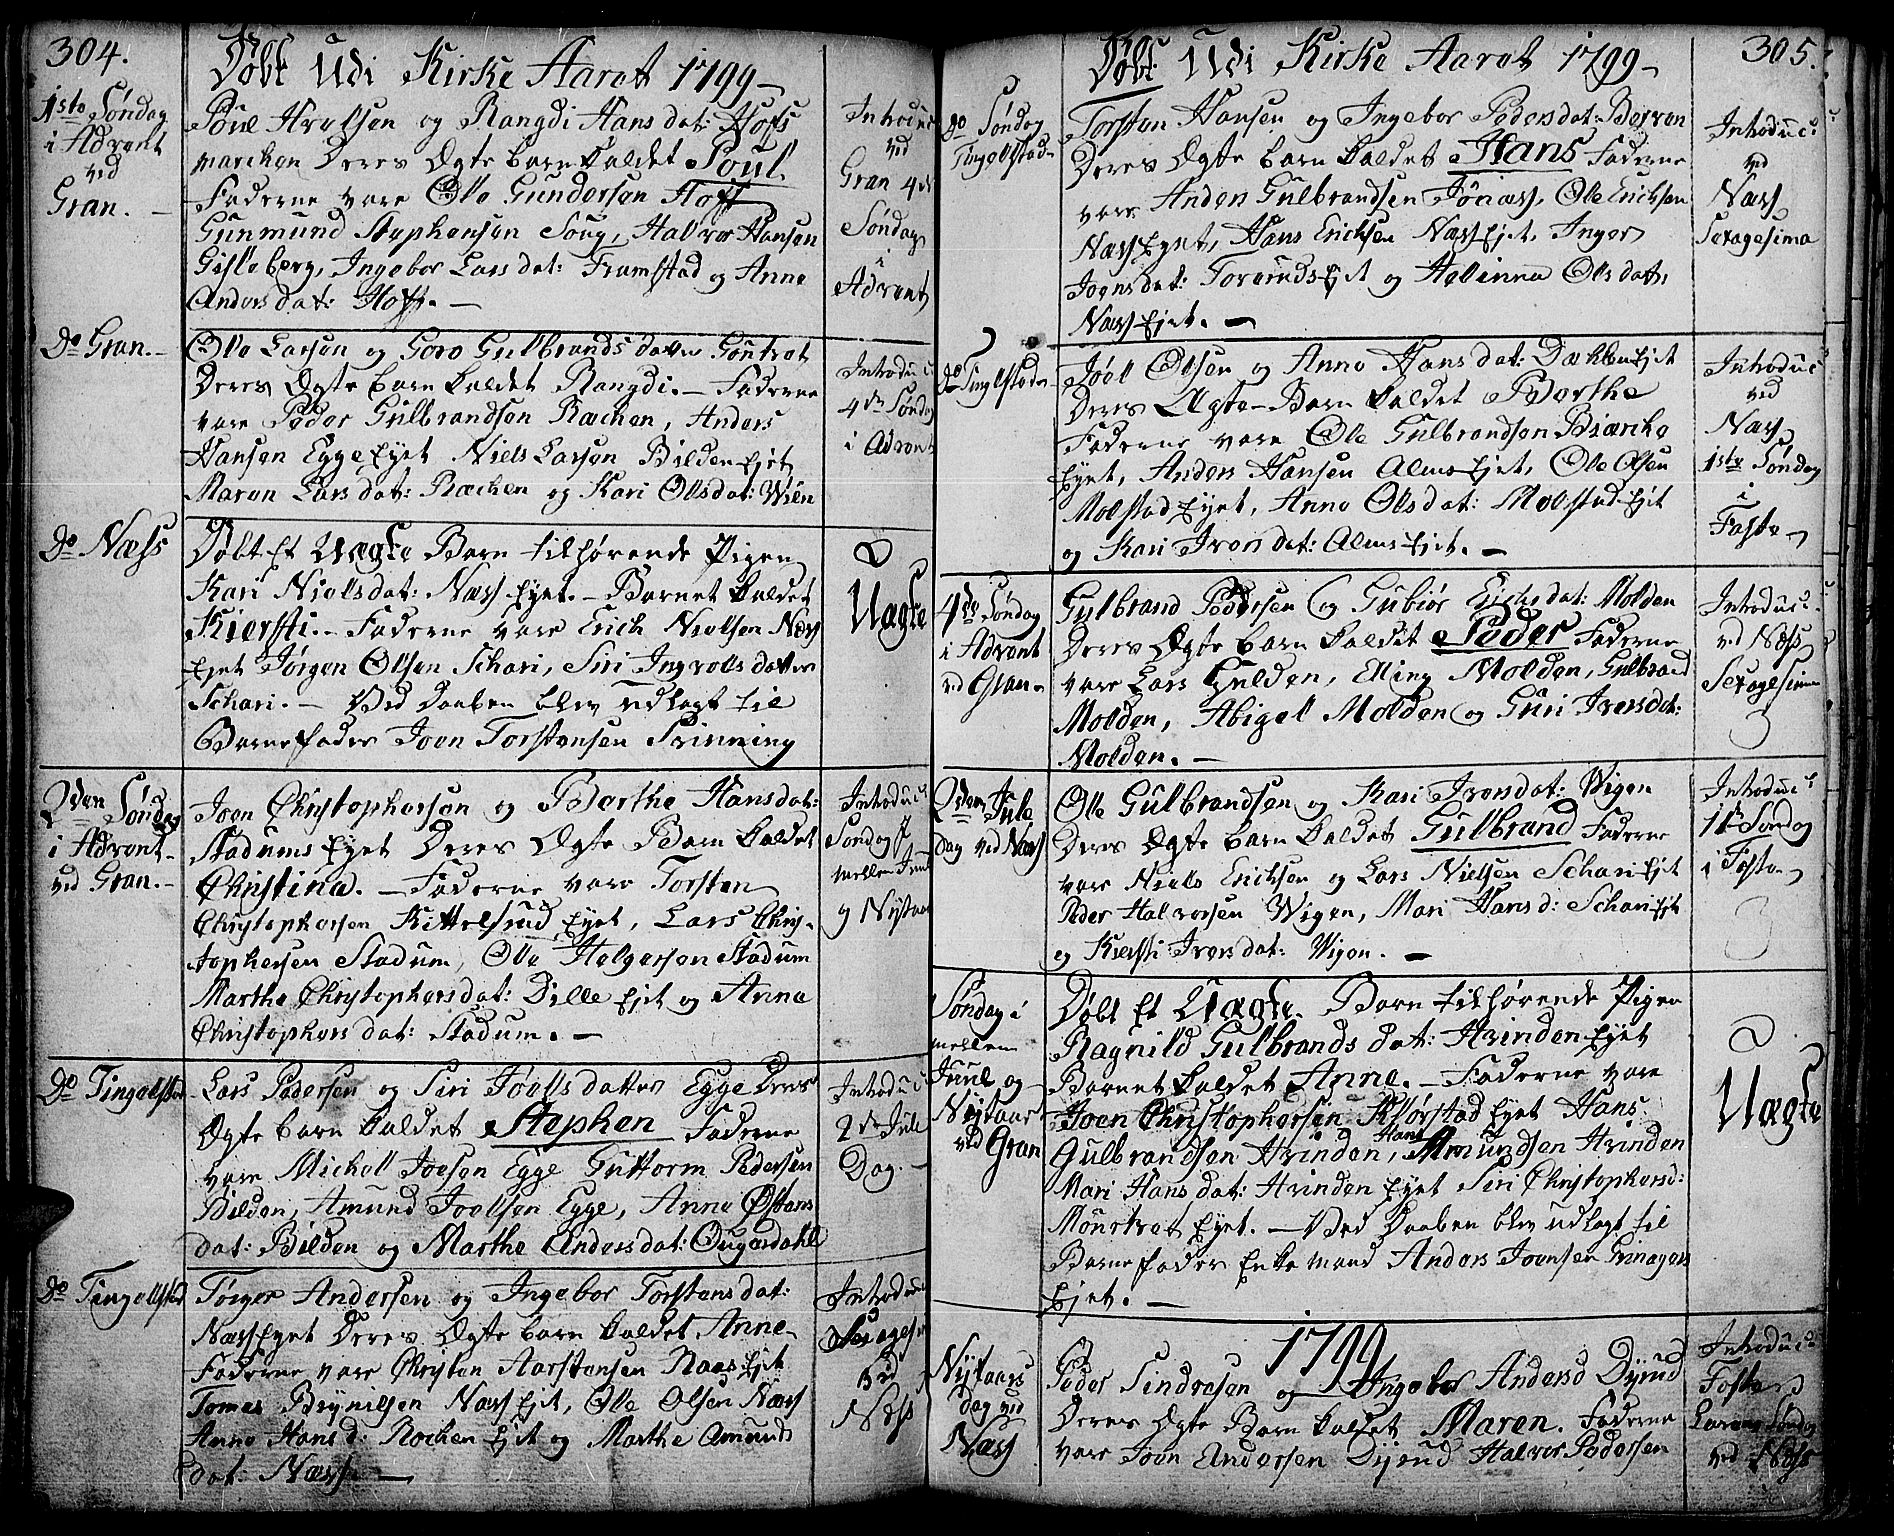 304.
Døbt Udi Kirke Aaret 1799 –
1ste Søndag
i Advent
ved
Gran. –
Poul Arvesen og Rangdi Hansdat: Hofs
marchen Deres Ægte barn kaldet Poul.
Faderne vare Ole Gundersen Hoff
Gunmund Stephensen Soug, Halvor Hansen
Gisleberg, Ingebor Larsdat: Framstad og Anne
Andersdat: Hoff. –
Introduc:
ved
Gran 4de
Søndag
i
Advent
Do Gran. –
Ole Larsen og Goro Gulbrandsdatter Gontvet
Deres Ægte barn kaldet Rangdi. – Faderne
vare Peder Gulbrandsen Rækken, Anders
Hansen Egge Eyet Niels Larsen Bilden Ejet
Maren Larsdat: Rækken og Kari Olsdat: Wien
Introduc:
4de Søndag
i Advent
Do Næss
Døbt Et Uægte Barn tilhørende Pigen
Kari Nielsdat: Næss Eyet. – Barnet kaldet
Kiersti. – Faderne vare Erich Nielsen Næss
Eyet Jørgen Olsen Schari, Siri Ingvolsdatter
Schari. – Ved Daaben blev udlagt til
Barnefader Joen Torstensen Prinning
Uægte
2den Søndag
i Advent
ved Gran. –
Joen Christophersen og Berthe Hansdat:
Stadums Eyet Deres Ægte Barn kaldet
Christina. – Faderne vare Torsten
Christophersen Kittelsrud Eyet, Lars Chris-
tophersen Stadum, Ole Helgersen Stadum
Marthe Christophersdat: Dille Ejet og Anne
Christophersdat: Stadum. –
Introduc:
Søndag
mellem Juul
og Nytaar
Do Tingelstad
Lars Pedersen og Siri Joellsdatter Egge Deres
Ægte barn kaldet Stephen Faderne
vare Michell Joesen Egge Guttorm Pedersen
Bilden, Amund Joelsen Egge, Anne Østens
dat: Bilden og Marthe Andersdat: Ougerdahl
Introduc:
2de Jule
Dag. –
Do Tingelstad
Torger Andersen og Ingebor Torstensdat:
Næss Eyet Deres Ægte barn kaldet Anne –
Faderne vare Christen Aarstensen Raas Ejet
Tomes Brynilsen Næss Ejet, Ole Olsen Næss
Anne Hansd: Rochen Ejet og Marthe Amunds
dat: Næss –
Introduc:
ved
Næss
305.
Døbt Udi Kirke Aaret 1799 –
Do Søndag
Tingelstad
Torsten Hansen og Ingebor Pedersdat: Berven
Deres Ægte barn kaldet Hans Faderne
vare Anders Gulbrandsen Jonass, Ole Erichsen
Næss Eyet, Hans Erichsen Næss Ejet, Inger
Joensdat: Gorunds Ejet og Helinna Olsdatt:
Næss Ejet. –
Introduc:
ved
Næss
Sexagesima
Do Tingelstad
Joel Olsen og Anne Hansdat: Dæhlen Ejet
Deres Ægte Barn kaldet Berthe
Faderne vare Ole Gulbrandsen Biærke
Eyet, Anders Hansen Alms Ejet, Ole Olsen
Molstad Eyet, Anne Olsdat: Molstad Ejet
og Kari Iversdat: Alms Ejet. –
Introduc:
ved
Næss
1ste Søndag
i
Faste
4de Søndag
i Advent
ved Gran –
Gulbrand Pedersen og Gubiør Erichsdat: Molden
Deres Ægte barn kaldet Peder Faderne
vare Lars Gulden, Elling Molden, Gulbrand
Molden, Abigel Molden og Guri Iversdat:
Molden. –
Introduc:
ved Næss
Sexagesima
2den Jule
Dag ved Næss
Ole Gulbrandsen og Kari Iversdat: Wigen
Deres Ægte barn kaldet Gulbrand Faderne
vare Niels Erichsen og Lars Nielsen Schari Ejet
Peder Halvorsen Wigen, Mari Hansd: Schari Ejet
og Kiersti Iversdat: Wigen. –
Introduc:
1te Søndag
i Faste
Søndag i
mellem
Juul og
Nytaar
ved Gran
Døbt Et Uægte Barn tilhørende Pigen
Ragnild Gulbrandsdat: Hvinden Eyet
Barnet kaldet Anne. – Faderne vare
Joen Christophersen Klørstad Eyet Hans
Gulbrandsen Hvinden, Hans Amundsen Hvinden
Mari Hansdat: Hvinden Eyet Siri Christophersd:
Monstvet Eyet. – Ved Daaben blev udlagt til
Barnefader Enkemand Anders Joensen Prinager
Ejet. –
Uægte
1799
Nytaars
Dag ved
Næss
Peder Sindresen og Ingebor Andersd Dynd
Deres Ægte Barn kaldet Maren. Faderne
vare Joen Andersen Dynd Halvor Pedersen
Introduc:
Faste
Søndag
ved Næss